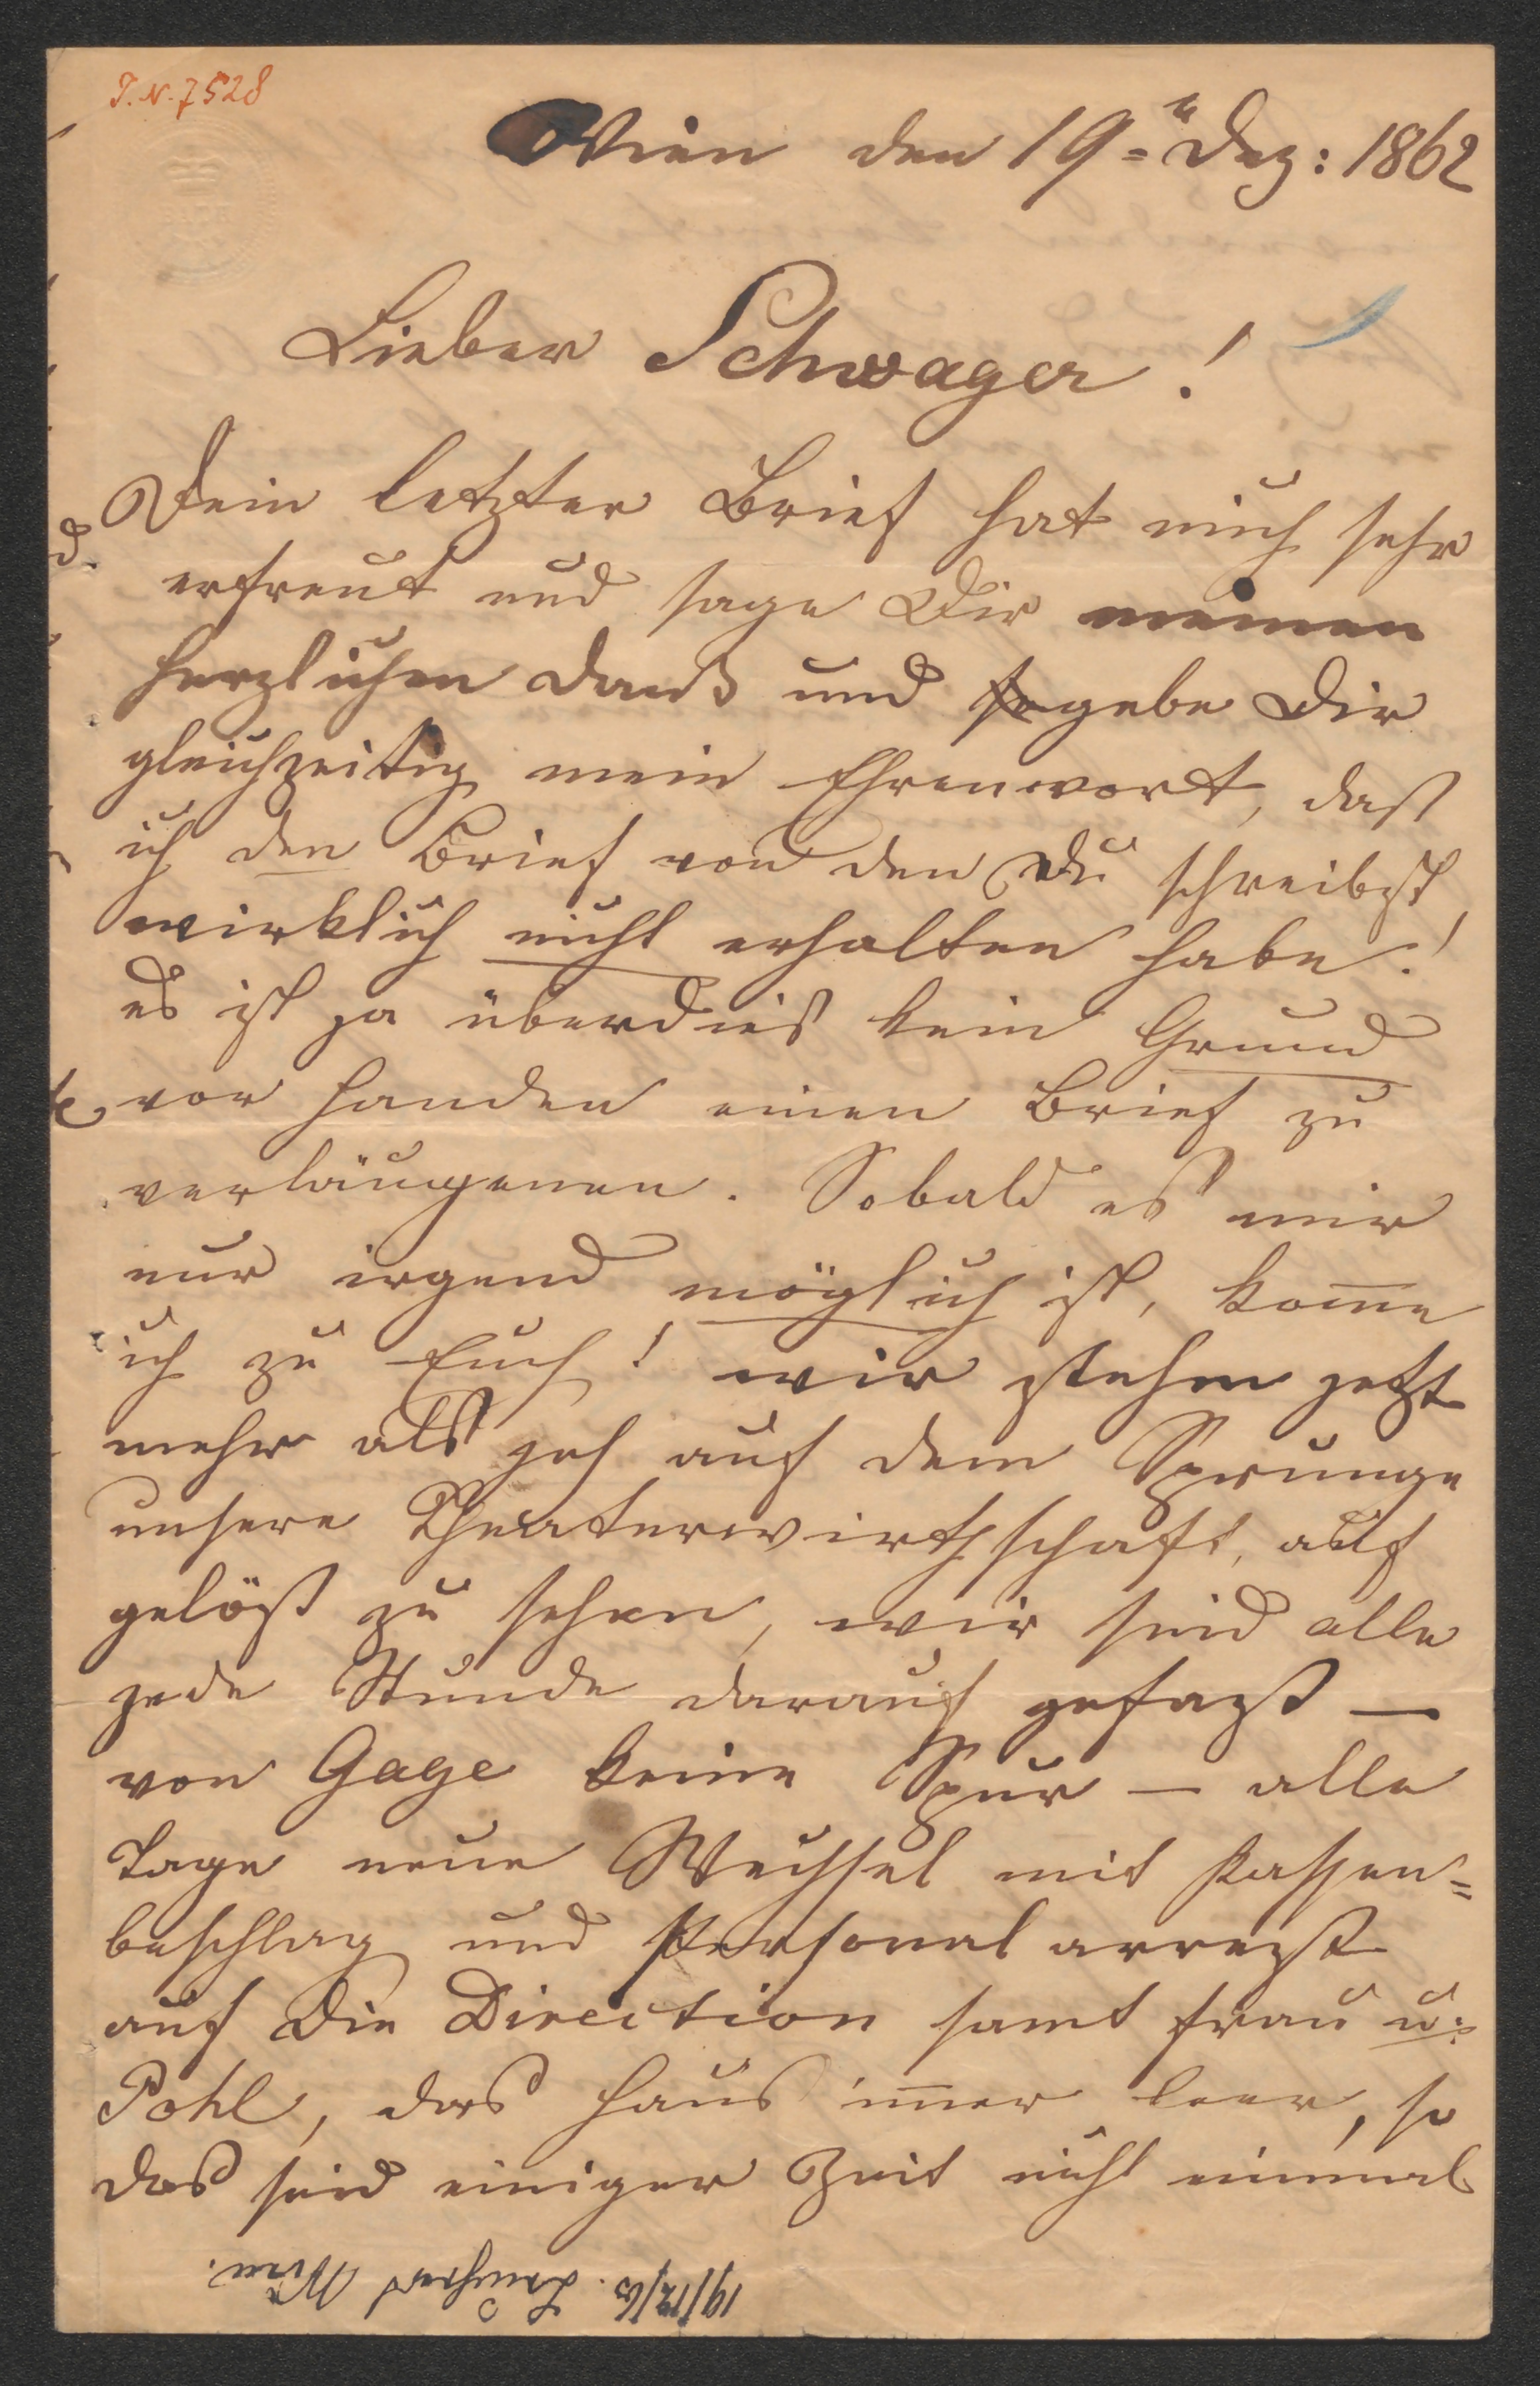 I. N. 7528
Wien den 19=n Dez: 1862
Lieber Schwager!
Dein letzter Brief hat mich sehr
erfreut und sage Dir meinen
herzlichen Dank und sogebe Dir
gleichzeitig mein Ehrenwort, dass
ich den Brief von den Du schreibst,
wirklich nicht erhalten habe!
es ist ja überdieß kein Grund
vor handen einen Brief zu
verläugenen. Sobald es mir
nur irgend möglich ist, kome
ich zu Euch! wir stehen jetzt
mehr als je auf dem Sprunge
unsere Theaterwirthschaft, auf
gelöst zu sehen, wir sind alle
jede Stunde darauf gefasst —
von Gage keine Spur — alle
Tage neue Wechsel mit Kassen=
beschlag und Personal arrest
auf die Direction samt Frau u:
Pohl, das Haus imer leer, so
das seid einiger Zeit nicht einmal
19/12/62 Wien.